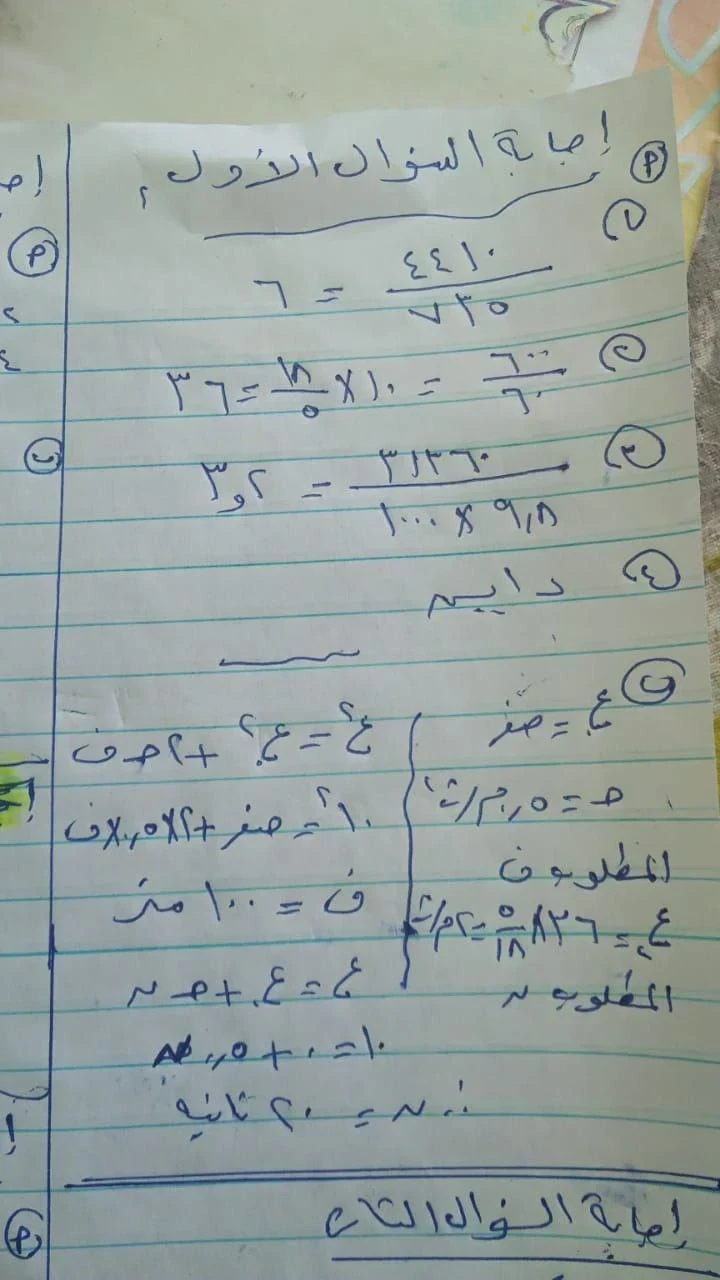 إجابة السؤال الأول
٢
١
٤٤١٠ / ٧٣٥ = ٦
٢
٦٠٠ / ٦٠ = ١٠ × ١٨ / ٥ = ٣٦
٣
٣١٣٦٠ / ٩,٨ × ١٠٠٠ = ٣,٢
٤
داين
ب
ع. = صفر
حـ = ٠,٥ م/ث٢
المطلوب ف
ع = ٣٦ × ٥ / ١٨ = م/ث
المطلوب ن
ع٢ = ع.٢ + ٢ حـ ف
١٠٢ = صفر + ٢ × ٠,٥ × ف
ف = ١٠٠ متر
ع = ع. + حـ ن
١٠ = ٠ + ٠,٥
∴ ن = ٢٠ ثانية
إجابة السؤال الثانى